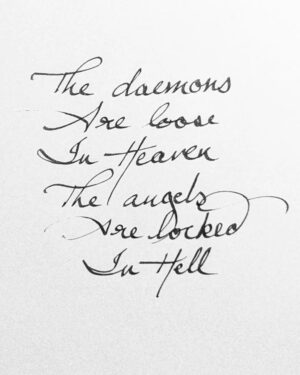 The daemons
Are loose
In Heaven
The angels
Are locked
In Hell